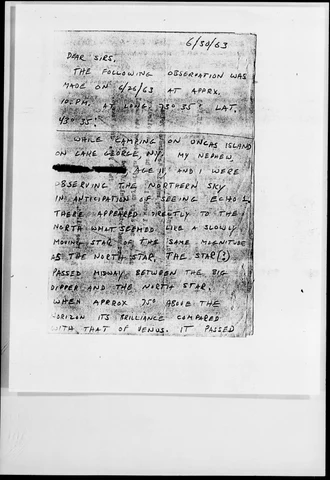 6/30/63
DEAR SIRS,
THE FOLLOWING OBSERVATION WAS
MADE ON 6/26/63 AT APPRX.
10:PM. AT LONG. 73° 35' LAT.
43° 35'.
WHILE CAMPING ON UNCAS ISLAND
ON LAKE GEORGE, N.Y. MY NEPHEW
AGE 11, AND I WERE
OBSERVING THE NORTHERN SKY
IN ANTICIPATION OF SEEING ECHO I,
THERE APPEARED DIRECTLY TO THE
NORTH WHAT SEEMED LIKE A SLOWLY
MOVING STAR OF THE SAME MAGNITUDE
AS THE NORTH STAR. THE STAR(?)
PASSED MIDWAY BETWEEN THE BIG
DIPPER AND THE NORTH STAR.
WHEN APPROX 75° ABOVE THE
HORIZON ITS BRILLIANCE COMPARED
WITH THAT OF VENUS. IT PASSED